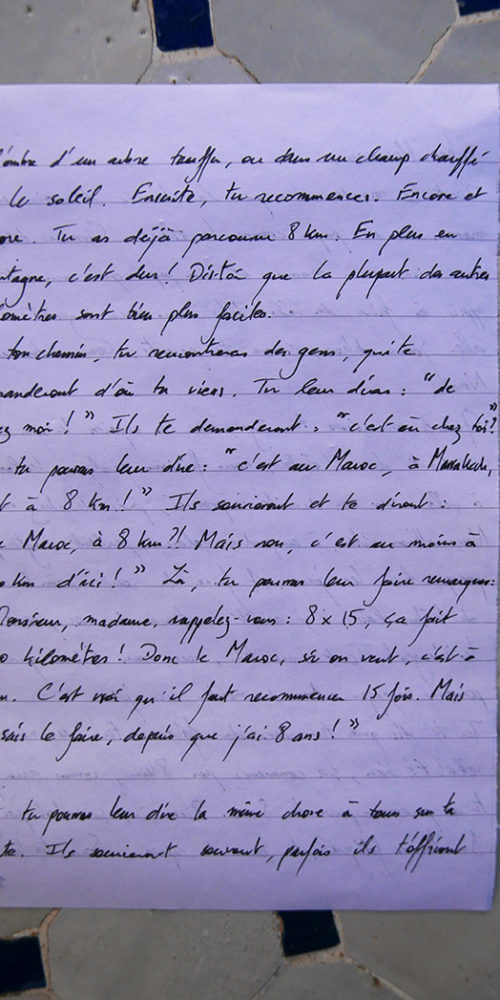 l'ombre d'un arbre touffu, ou dans un champ chauffé
le soleil. Ensuite, tu recommences. Encore et
ore. Tu as déjà parcouru 8 km. En plus en
ntagne, c'est dur ! Dis-toi que la plupart des autres
lomètres sont bien plus faciles.
ton chemin, tu rencontreras des gens, qui te
manderont d'où tu viens. Tu leur diras : "de
ez moi ! " Ils te demanderont : "c'est où chez toi ?"
tu pourras leur dire : "c'est au Maroc, à Marrakech,
t à 8 km ! " Ils souriront et te diront :
Maroc, à 8 km ?! Mais non, c'est au moins à
0 km d'ici ! " Là, tu pourras leur faire remarquer :
Monsieur, madame, rappelez-vous : 8 x 15, ça fait
0 kilomètres ! Donc le Maroc, si on veut, c'est à
m. C'est vrai qu'il faut recommencer 15 fois. Mais
sais le faire, depuis que j'ai 8 ans ! "
tu pourras leur dire la même chose à tous sur ta
te. Ils souriront souvent, parfois ils t'offriront